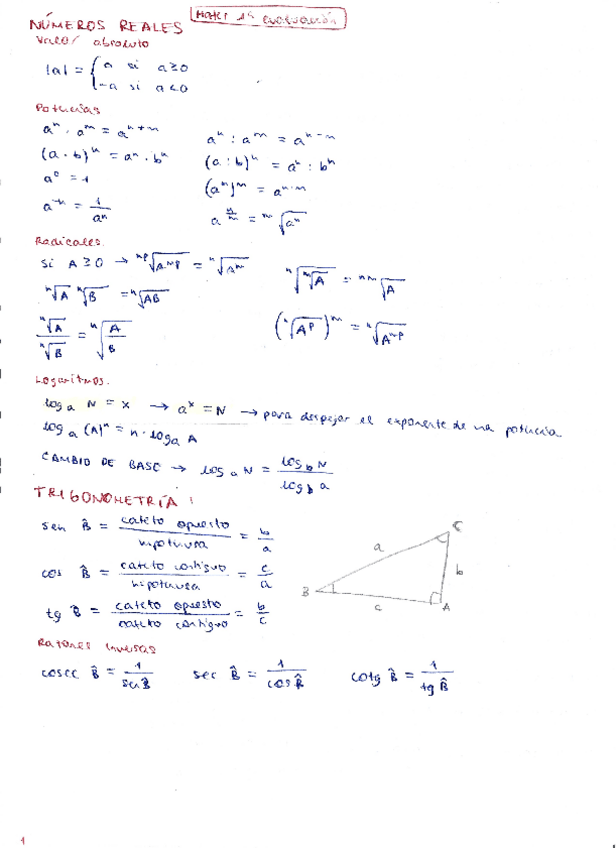 Mates 1ª evaluación
NÚMEROS REALES
Valor absoluto
|a| = { a si a ≥ 0
-a si a < 0
Potencias
aⁿ · aᵐ = aⁿ⁺ᵐ    aⁿ : aᵐ = aⁿ⁻ᵐ
(a · b)ⁿ = aⁿ · bⁿ    (a : b)ⁿ = aⁿ : bⁿ
a⁰ = 1    (aⁿ)ᵐ = aⁿ·ᵐ
a⁻ⁿ = 1/aⁿ    a^(n/m) = ᵐ√aⁿ
Radicales
si A ≥ 0 → ⁿᵖ√Aᵐᵖ = ⁿ√Aᵐ    ⁿ√ᵐ√A = ⁿᵐ√A
ⁿ√A ⁿ√B = ⁿ√AB
ⁿ√A / ⁿ√B = ⁿ√(A/B)    (ⁿ√Aᵖ)ᵐ = ⁿ√Aᵐ·ᵖ
Logaritmos.
logₐ N = x → aˣ = N → para despejar el exponente de una potencia.
logₐ (A)ⁿ = n · logₐ A
CAMBIO DE BASE → logₐ N = log_b N / log_b a
TRIGONOMETRÍA:
sen B̂ = cateto opuesto / hipotenusa = b/a
cos B̂ = cateto contiguo / hipotenusa = c/a
tg B̂ = cateto opuesto / cateto contiguo = b/c
C
a
b
B
c
A
Razones inversas
cosec B̂ = 1 / sen B̂    sec B̂ = 1 / cos B̂    cotg B̂ = 1 / tg B̂
1